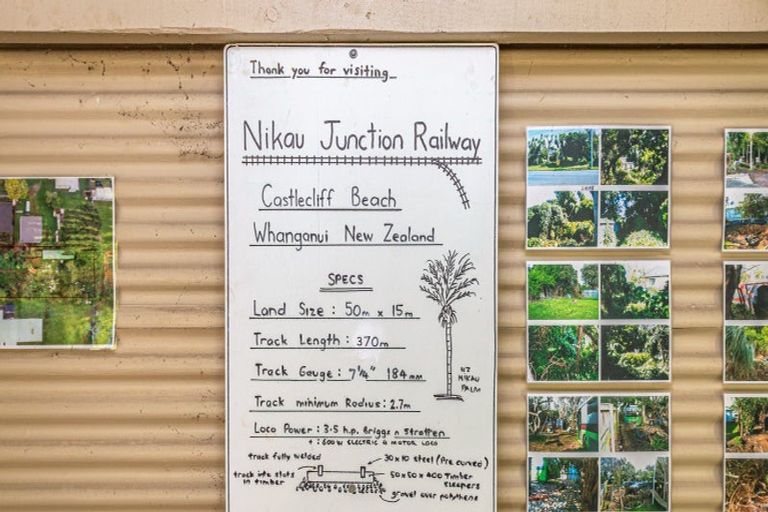 Thank you for visiting
Nikau Junction Railway
Castlecliff Beach
Whanganui New Zealand
SPECS
Land Size : 50m x 15m
Track Length : 370m
Track Gauge : 7¼" 184mm
Track minimum Radius : 2.7m
Loco Power : 3.5 h.p. Briggs n Stratten
+ : 600W ELECTRIC G MOTOR LOCO
NZ
NIKAU
PALM
track fully welded
30x10 steel (Pre curved)
track into slots
in timber
50x50x400 Timber
sleepers
gravel over polythene